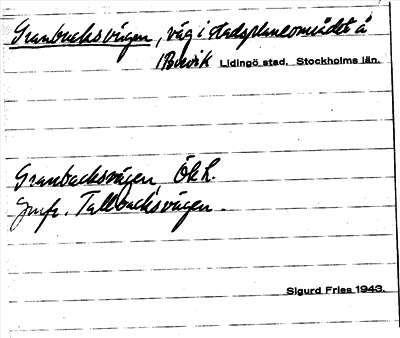 Granbacksvägen, väg i stadsplaneområdet å
Brevik Lidingö stad, Stockholms län.
Granbacksvägen Ök L.
Jmfr. Tallbacksvägen.
Sigurd Fries 1943.